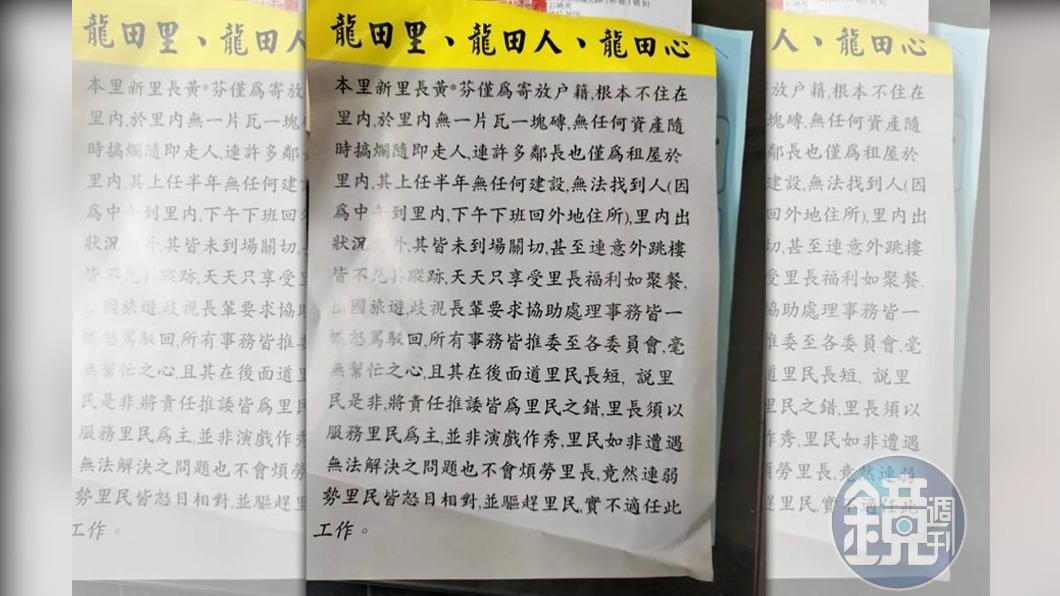 龍田里、龍田人、龍田心
本里新里長黃*芬僅為寄放户籍,根本不住在
里內,於里內無一片瓦一塊磚,無任何資產隨
時搞爛隨即走人,連許多鄰長也僅為租屋於
里內,其上任半年無任何建設,無法找到人(因
為中午到里內,下午下班回外地住所),里內出
狀況 外,其皆未到場關切,甚至連意外跳樓
皆不見其蹤跡,天天只享受里長福利如聚餐,
出國旅遊,歧視長輩要求協助處理事務皆一
概怒罵駁回,所有事務皆推委至各委員會,毫
無幫忙之心,且其在後面道里民長短, 說里
民是非,將責任推諉皆為里民之錯,里長須以
服務里民為主,並非演戲作秀,里民如非遭遇
無法解決之問題也不會煩勞里長,竟然連弱
勢里民皆怒目相對,並驅趕里民,實不適任此
工作。
鏡週刊